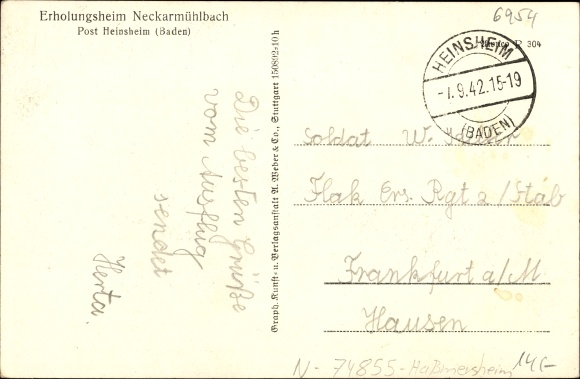 Erholungsheim Neckarmühlbach
Post Heinsheim (Baden)
6954
R 304
HEINSHEIM
-7.9.42.15-19
(BADEN)
Die besten Grüße
vom Ausflug
sendet
Herta.
Graph. Kunst- u. Verlagsanstalt A. Weber & Co., Stuttgart 150892-10 h
Soldat W.
Flak Ers. Rgt 2 / Stab
Frankfurt a/M
Hausen
N- 74855-Haßmersheim
14,-